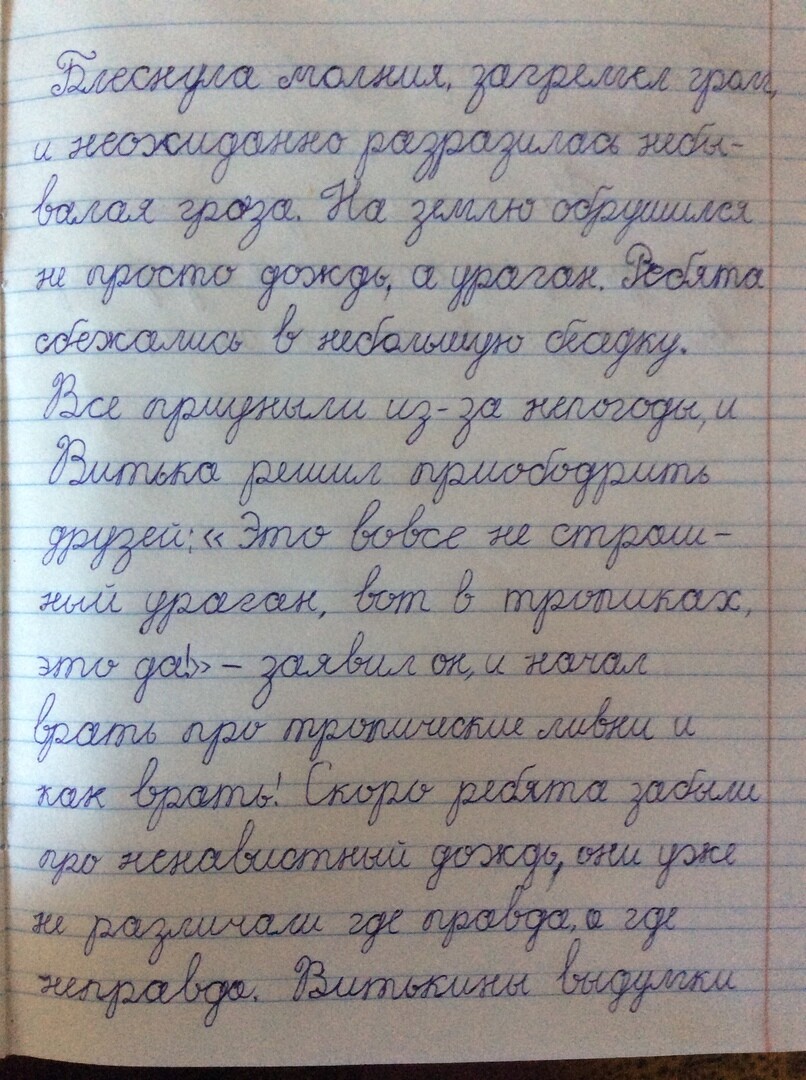 Блеснула молния, загремел гром,
и неожиданно разразилась небы-
валая гроза. На землю обрушился
не просто дождь, а ураган. Ребята
сбежались в небольшую беседку.
Все приуныли из-за непогоды, и
Витька решил приободрить
друзей: « Это вовсе не страш-
ный ураган, вот в тропиках,
это да!» – заявил он, и начал
врать про тропические ливни и
как врать! Скоро ребята забыли
про ненавистный дождь, они уже
не различали где правда, а где
неправда. Витькины выдумки